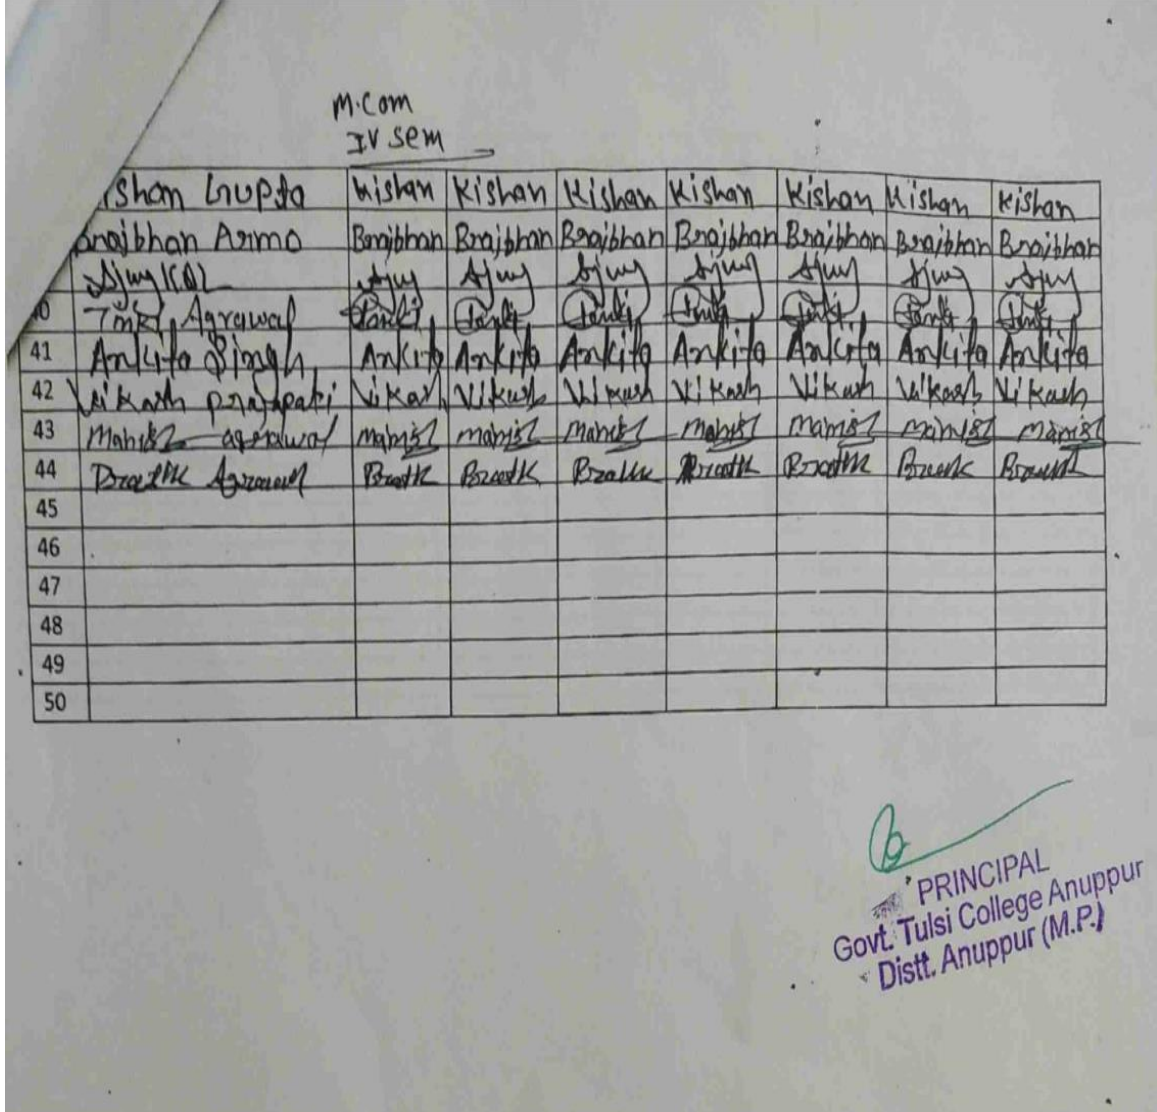 M.Com
IV Sem
ishan Gupta Kishan Kishan Kishan Kishan Kishan Kishan Kishan
Brajbhan Armo Brajbhan Brajbhan Brajbhan Brajbhan Brajbhan Brajbhan Brajbhan
Ajay Kol Ajay Ajay Ajay Ajay Ajay Ajay Ajay
0 Agrawal
41 Ankita Singh Ankita Ankita Ankita Ankita Ankita Ankita Ankita
42 Vikash prajapati Vikash Vikash Vikash Vikash Vikash Vikash Vikash
43 Manish agrawal Manish Manish Manish Manish Manish Manish Manish
44
45
46
47
48
49
50
PRINCIPAL
Govt. Tulsi College Anuppur
Distt. Anuppur (M.P.)